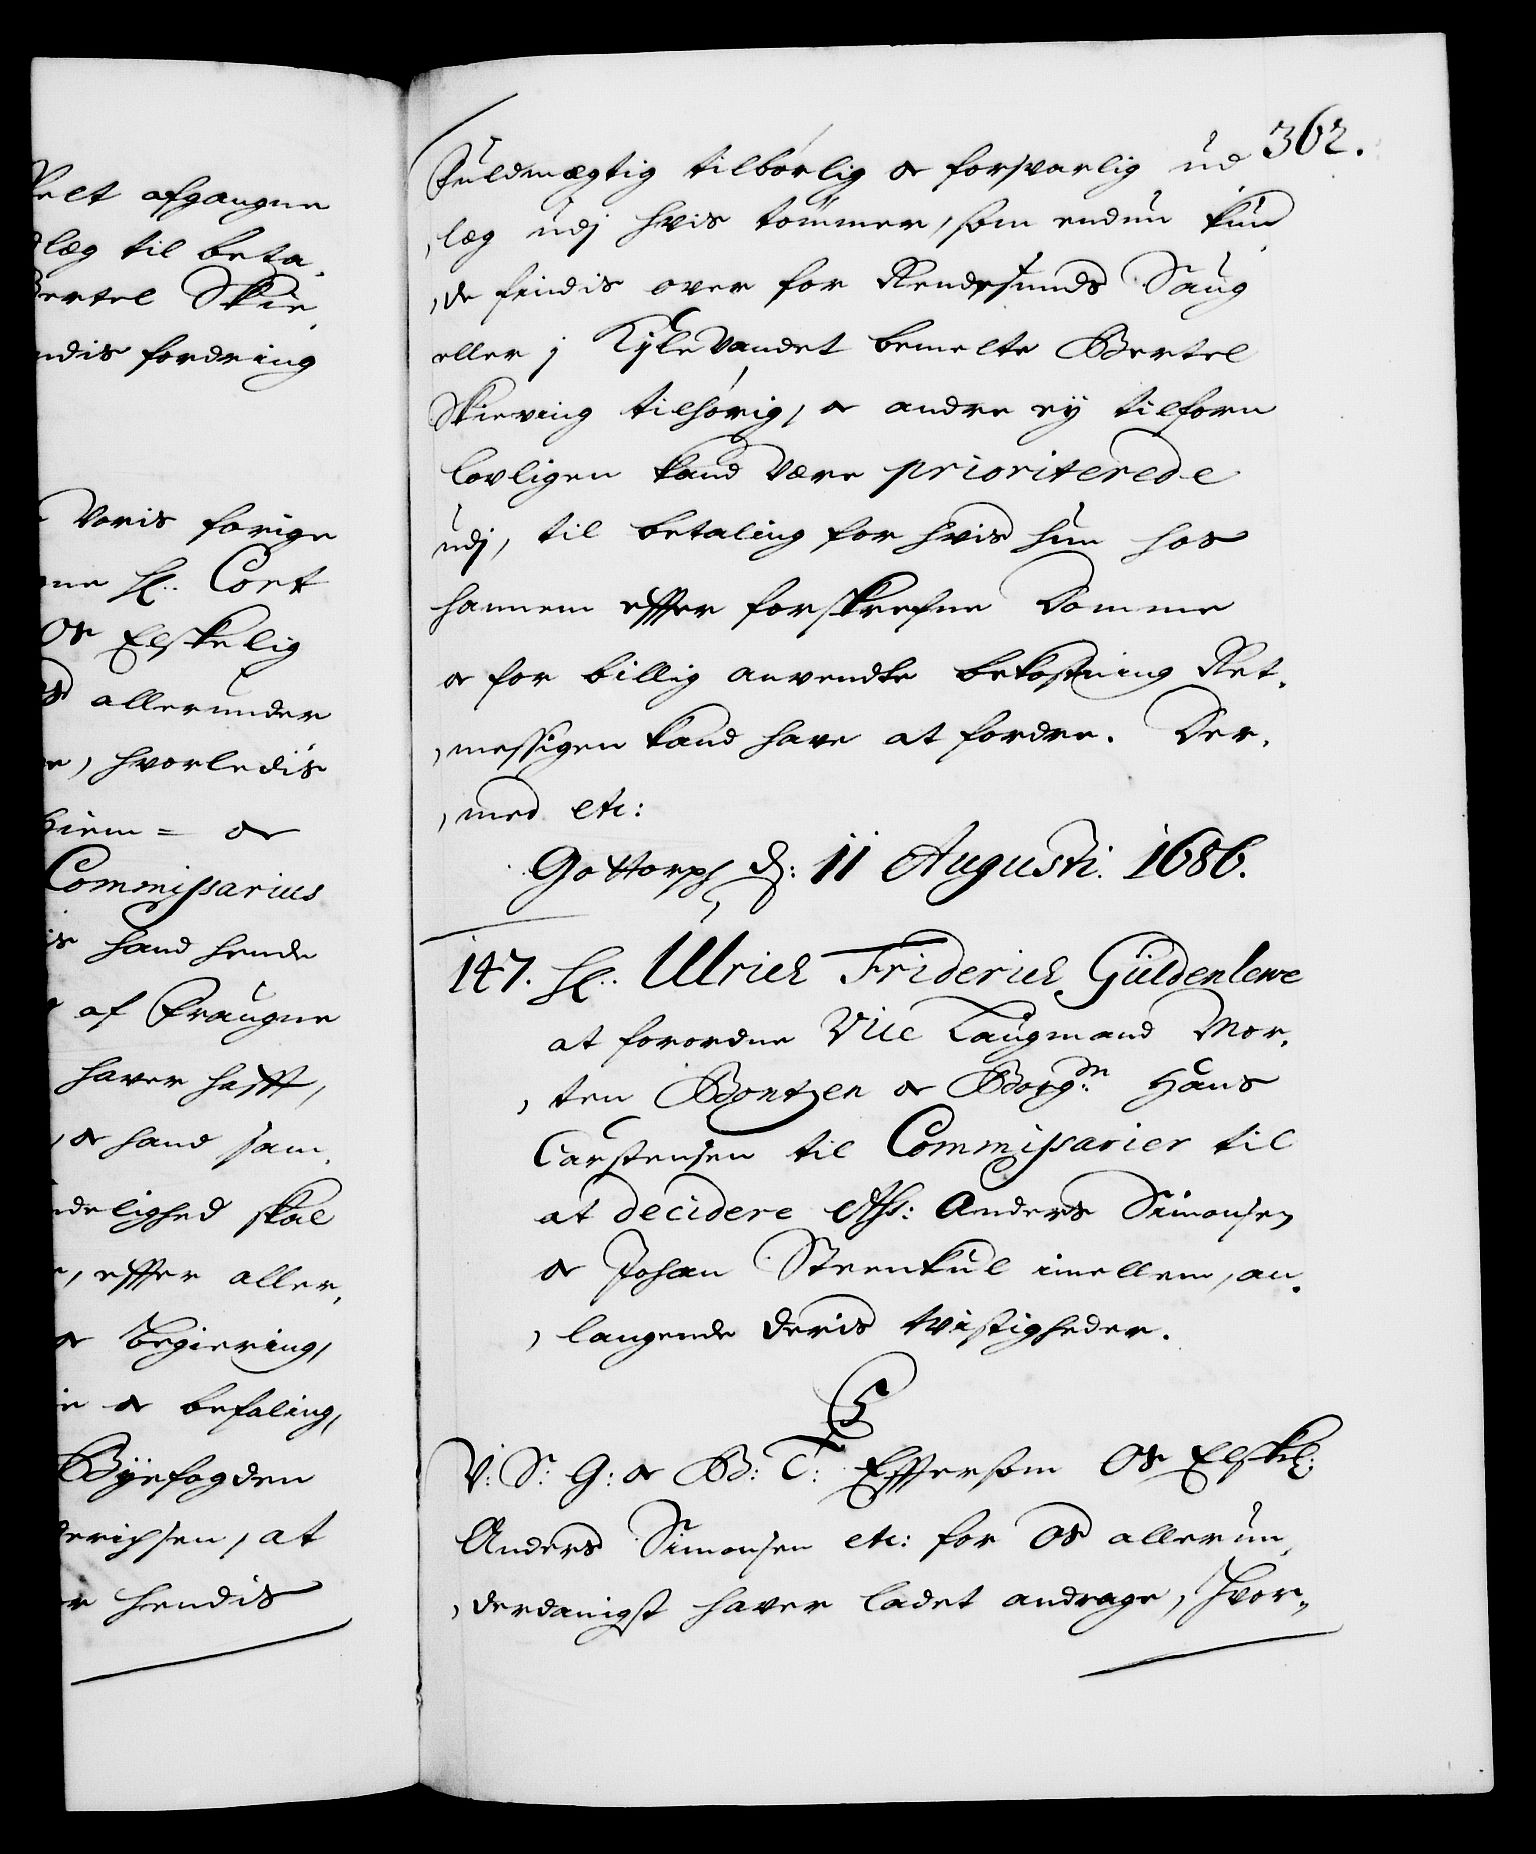 elt afgangne
læg til beta,
ertel Skie,
ndis fordring
Voris forige
ne Hr. Cort
Os Elskelig
allerunder
e, hvorledis
hiem= oc
Commissarius
is hand hende
af Fraugne
haver hafft,
, oc hand sam,
delighed skal
, effter aller,
oc begiering,
ie oc befaling,
Byefogden
derichsen, at
r hendis
362.
Fuldmægtig tilbørlig oc forsvarlig ud
,læg udj hvis tømmer, som endnu kun
,de findis over for Rendesunds Saug
eller j Kyle Vandet bemelte Bertel
Skieving tilhørig, oc andre ej tilforn
lovligen kand være prioriterede
udj, til betaling for hvis hun hos
hannem effter forskrefne Domme
oc for billig anvendte bekostning Ret,
,messigen kand have at fordre. Der,
,med etc:
Gottorph d: 11 Augusti. 1686.
147. Hr. Ulrich Friderich Güldenlewe
at forordne Vice Laugmand Mor,
,ten Bontzen oc Borgm: Hans
Carstensen til Commissarier til
at decidere Ass: Anders Simonsen
oc Johan Steenkul imellem, an,
,langende deris tvistigheder.
C5
V: S: G: oc B: T: Effersom Os Elskl:
Anders Simonsen etc: for Os allerun,
,derdanigst haver ladet andrage, hvor,,